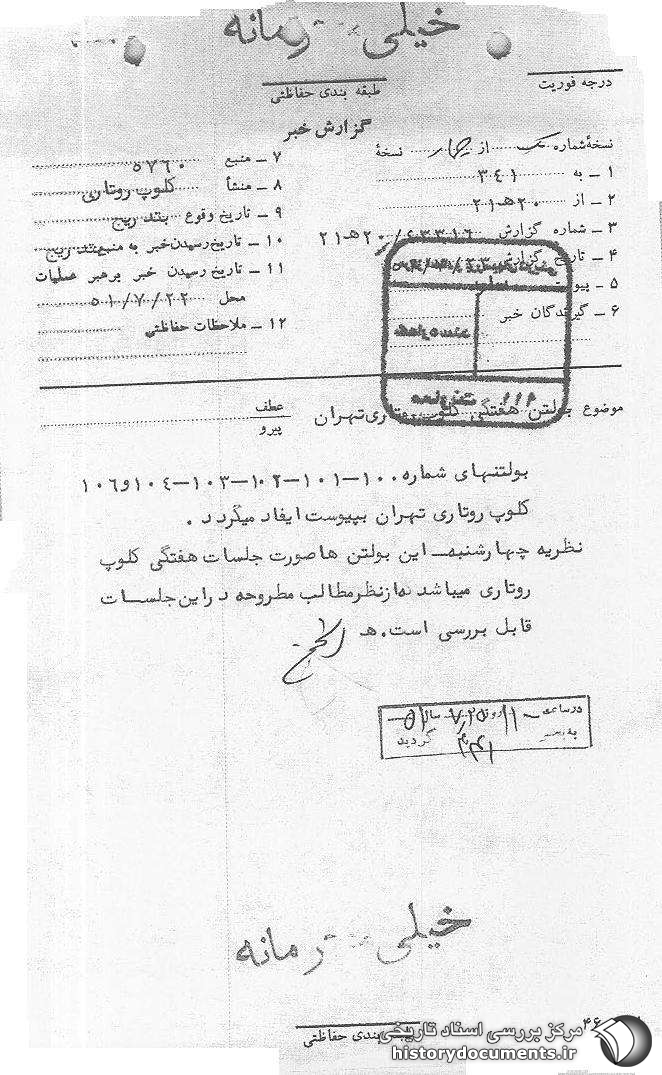 خیلی محرمانه
درجه فوریت
طبقه بندی حفاظتی
گزارش خبر
نسخهٔ شماره یک از چهار نسخهٔ
۱ ـ به ۳٤۱
۲ ـ از ۲۰هـ۲۱
۳ ـ شماره گزارش ۲۰/٤۳۳۱٦هـ۲۱
۴ ـ تاریخ گزارش
۵ ـ پیوست
۶ ـ گیرندگان خبر
۷ ـ منبع ۵۷٦۰
۸ ـ منشأ کلوپ روتاری
۹ ـ تاریخ وقوع بتدریج
۱۰ ـ تاریخ رسیدن خبر به منبع بتدریج
۱۱ ـ تاریخ رسیدن خبر برهبر عملیات
محل ۵۱/۷/۲۲
۱۲ ـ ملاحظات حفاظتی
موضوع بولتن هفتگی کلوپ روتاری تهران
عطف
پیرو
بولتنهای شماره ۱۰۰-۱۰۱-۱۰۲-۱۰۳-۱۰٤ و ۱۰٦
کلوپ روتاری تهران بپیوست ایفاد میگردد .
نظریه چهارشنبه ـ این بولتن ها صورت جلسات هفتگی کلوپ
روتاری میباشد که از نظر مطالب مطروحه در این جلسات
قابل بررسی است. هـ
در ساعت ۱۱ روز ۷/۲۵ سال ۵۱
گردید
خیلی محرمانه
طبقه بندی حفاظتی
مرکز بررسی اسناد تاریخی
historydocuments.ir